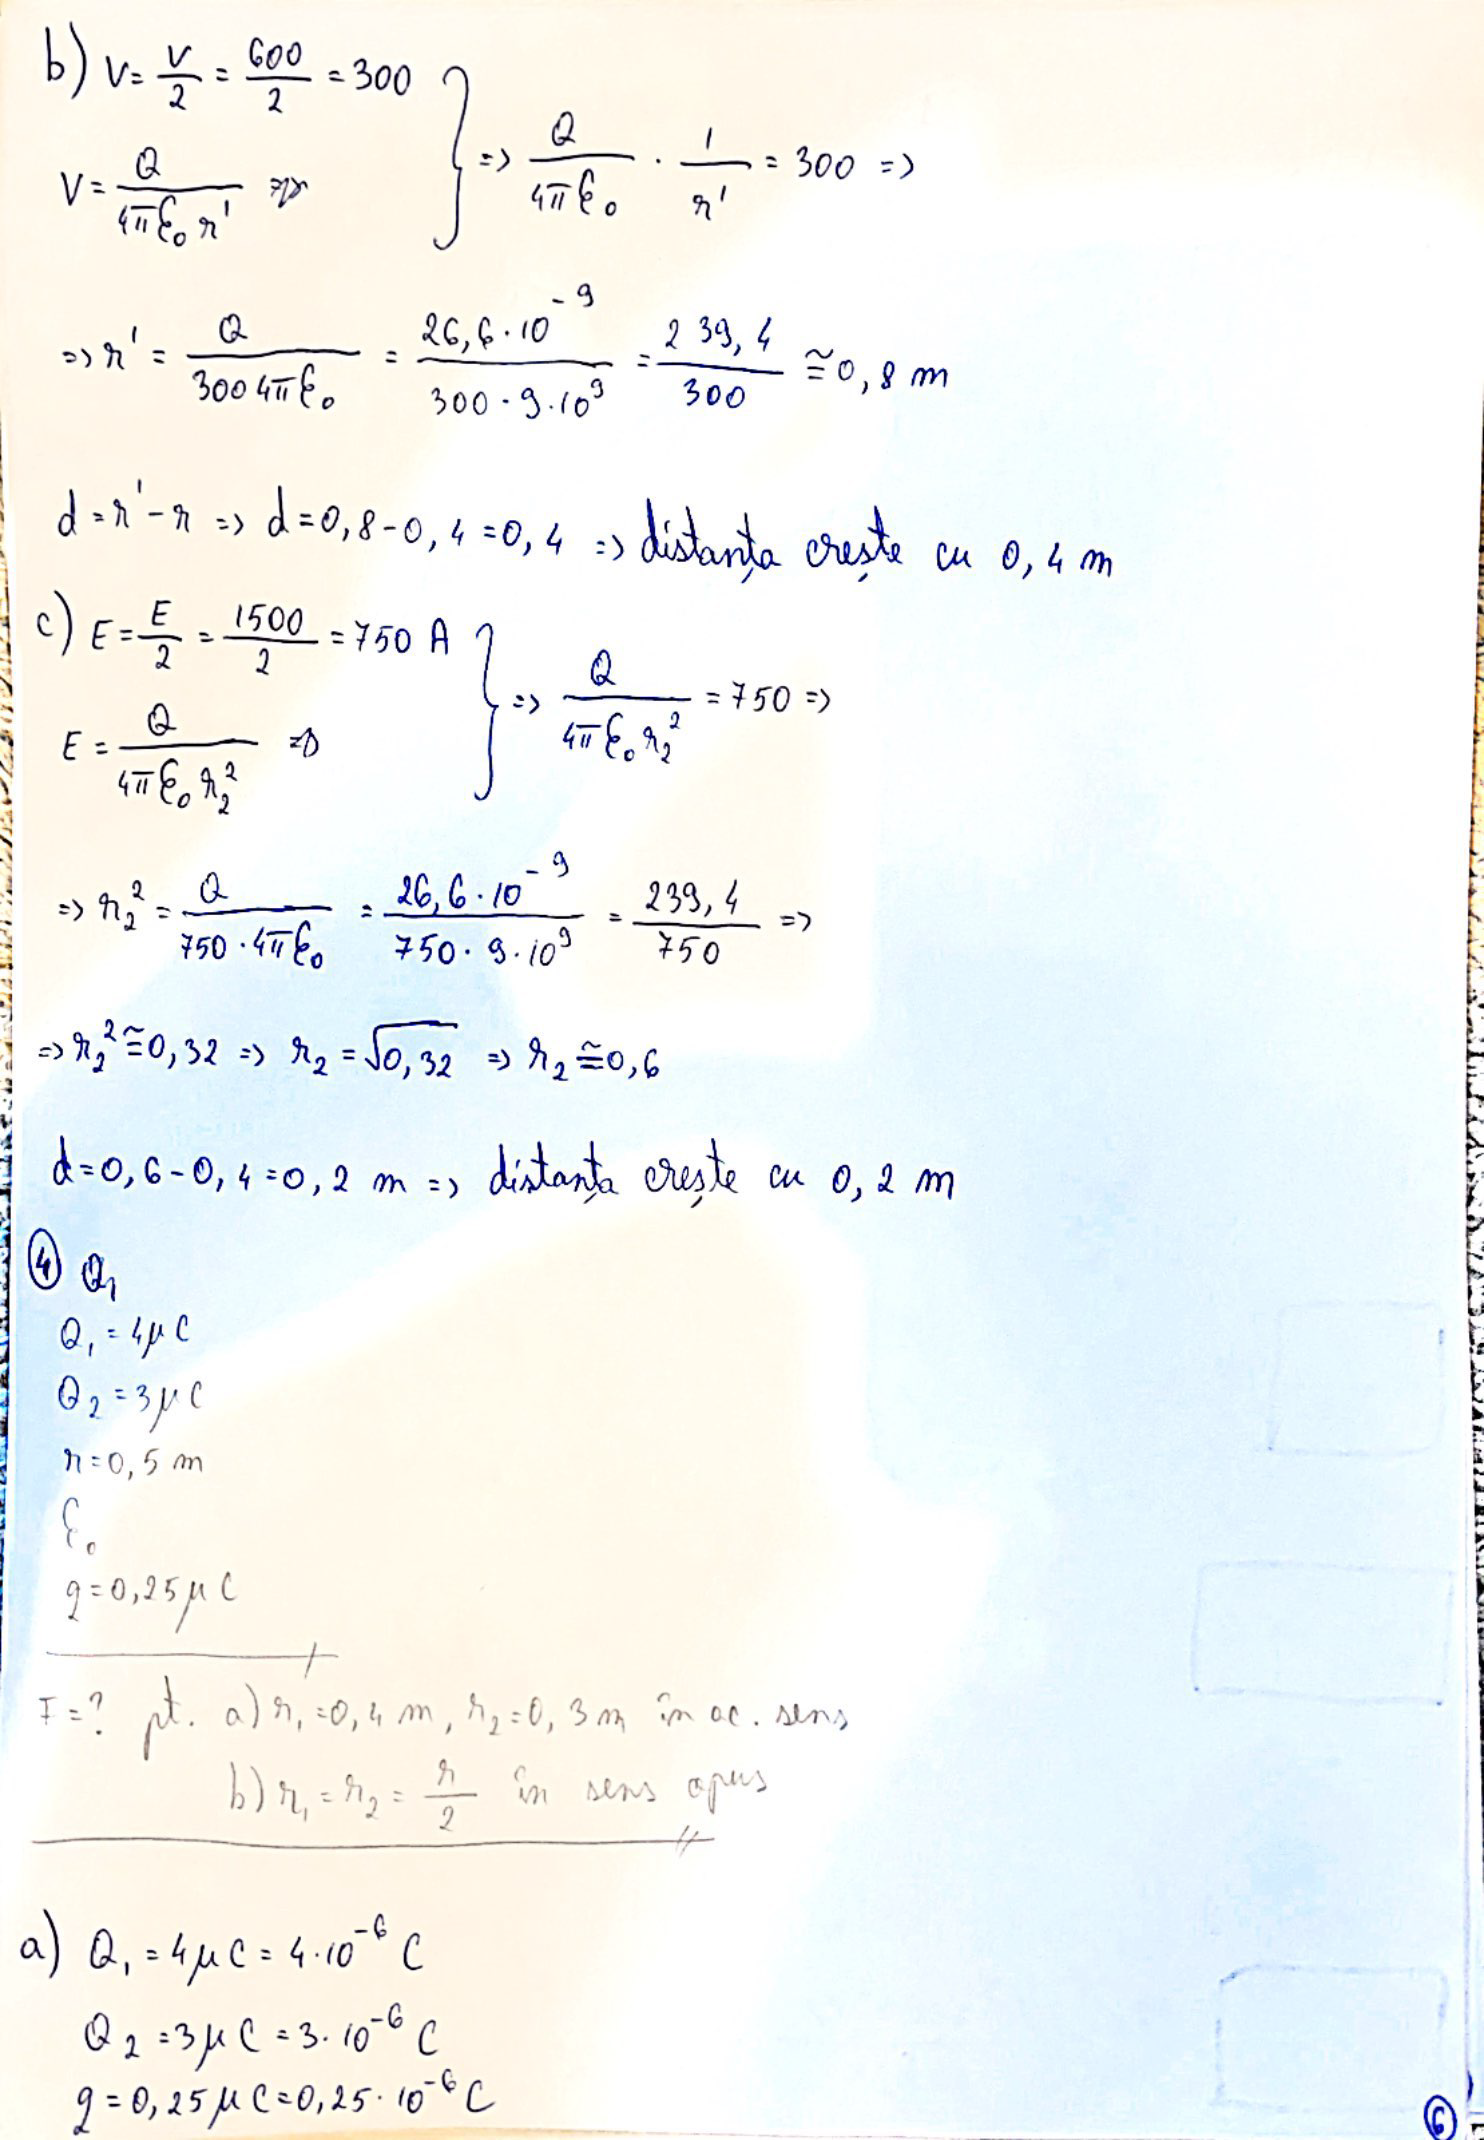 b) V = V/2 = 600/2 = 300
V = Q/4πε₀r' } => Q/4πε₀ · 1/r' = 300 =>
=> r' = Q/300 4πε₀ = 26,6·10⁻⁹/300·9·10⁹ = 239,4/300 ≅ 0,8 m
d = r' - r => d = 0,8 - 0,4 = 0,4 => distanța crește cu 0,4 m
c) E = E/2 = 1500/2 = 750 A
E = Q/4πε₀r₂² } => Q/4πε₀r₂² = 750 =>
=> r₂² = Q/750·4πε₀ = 26,6·10⁻⁹/750·9·10⁹ = 239,4/750 =>
=> r₂² ≅ 0,32 => r₂ = √0,32 => r₂ ≅ 0,6
d = 0,6 - 0,4 = 0,2 m => distanța crește cu 0,2 m
④ Q₁
Q₁ = 4μC
Q₂ = 3μC
r = 0,5 m
ε₀
q = 0,25μC
F = ? pt. a) r₁ = 0,4 m, r₂ = 0,3 m în ac. sens
b) r₁ = r₂ = r/2 în sens opus
a) Q₁ = 4μC = 4·10⁻⁶ C
Q₂ = 3μC = 3·10⁻⁶ C
q = 0,25μC = 0,25·10⁻⁶ C
⑥